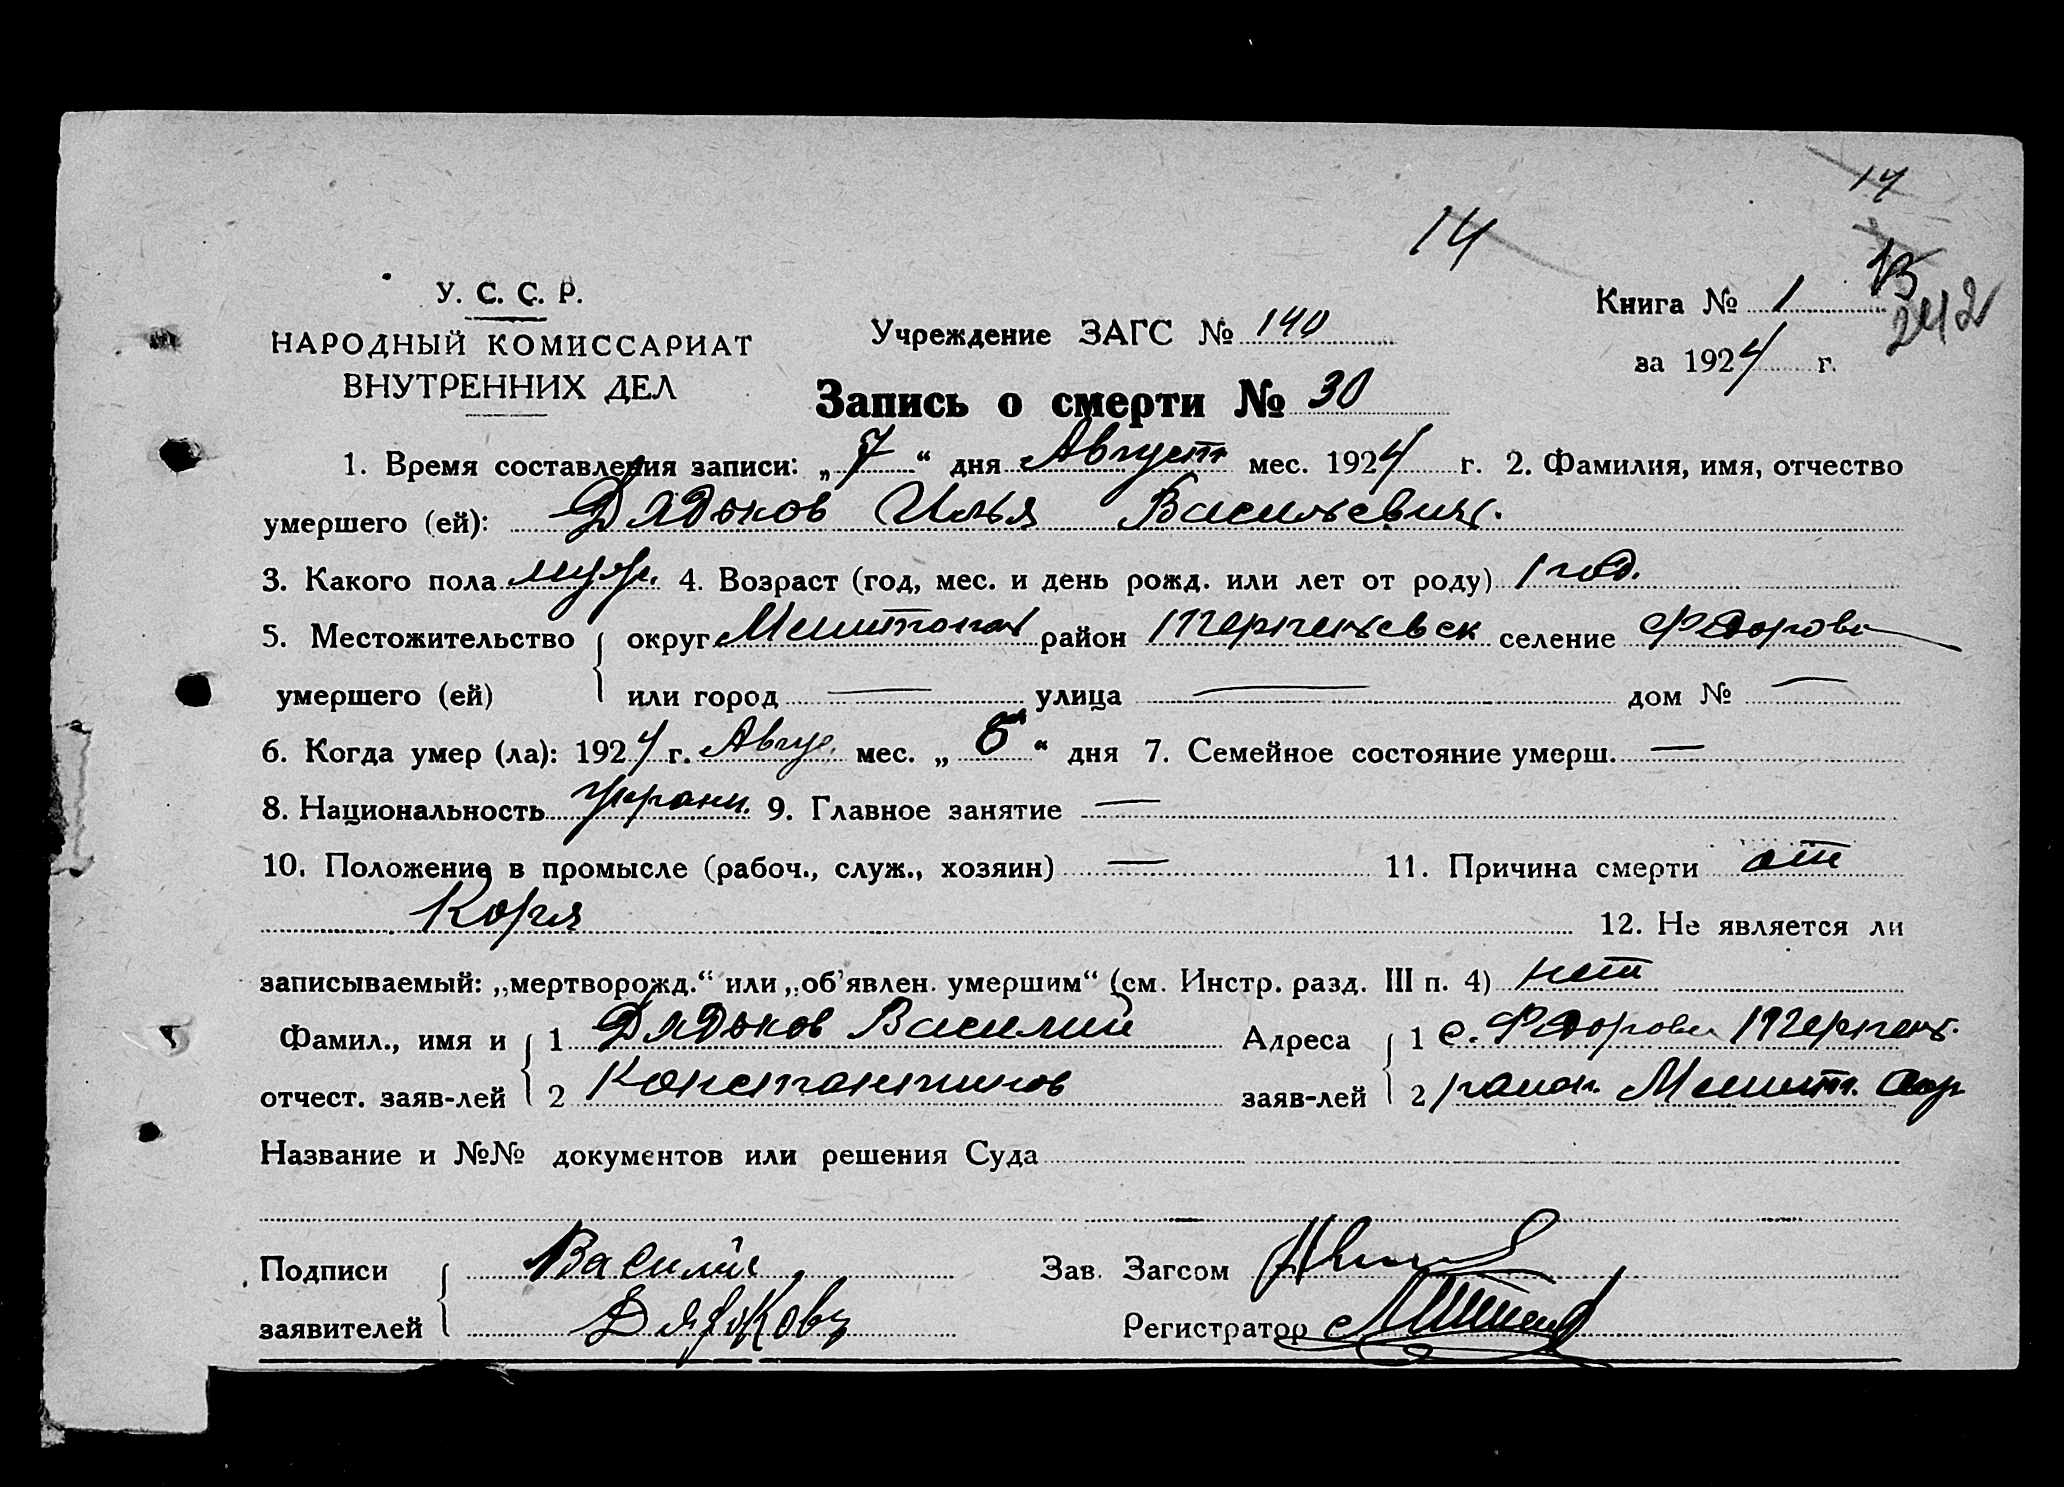 14
14
13
242
У. С. С. Р.
НАРОДНЫЙ КОМИССАРИАТ
ВНУТРЕННИХ ДЕЛ
Учреждение ЗАГС № 140
Книга № 1
за 1924 г.
Запись о смерти № 30
1. Время составления записи: „7“ дня Август мес. 1924 г. 2. Фамилия, имя, отчество
умершего (ей): Дядюков Илья Васильевич.
3. Какого пола муж. 4. Возраст (год, мес. и день рожд. или лет от роду) 1 год.
5. Местожительство округ Мелитопол район Терпеньевск селение Федоровка
умершего (ей) или город — улица — дом № —
6. Когда умер (ла): 1924 г. Авгус. мес. „6“ дня 7. Семейное состояние умерш. —
8. Национальность украин. 9. Главное занятие —
10. Положение в промысле (рабоч., служ., хозяин) — 11. Причина смерти от
Коря 12. Не является ли
записываемый: „мертворожд.“ или „об’явлен. умершим“ (см. Инстр. разд. III п. 4) нет
Фамил., имя и 1 Дядюков Василий Адреса 1 с. Федоровка Терпень.
отчест. заяв-лей 2 Константинов заяв-лей 2 район. Мелит. окр
Название и №№ документов или решения Суда
Подписи Василий Зав. Загсом
заявителей Дядюковъ Регистратор